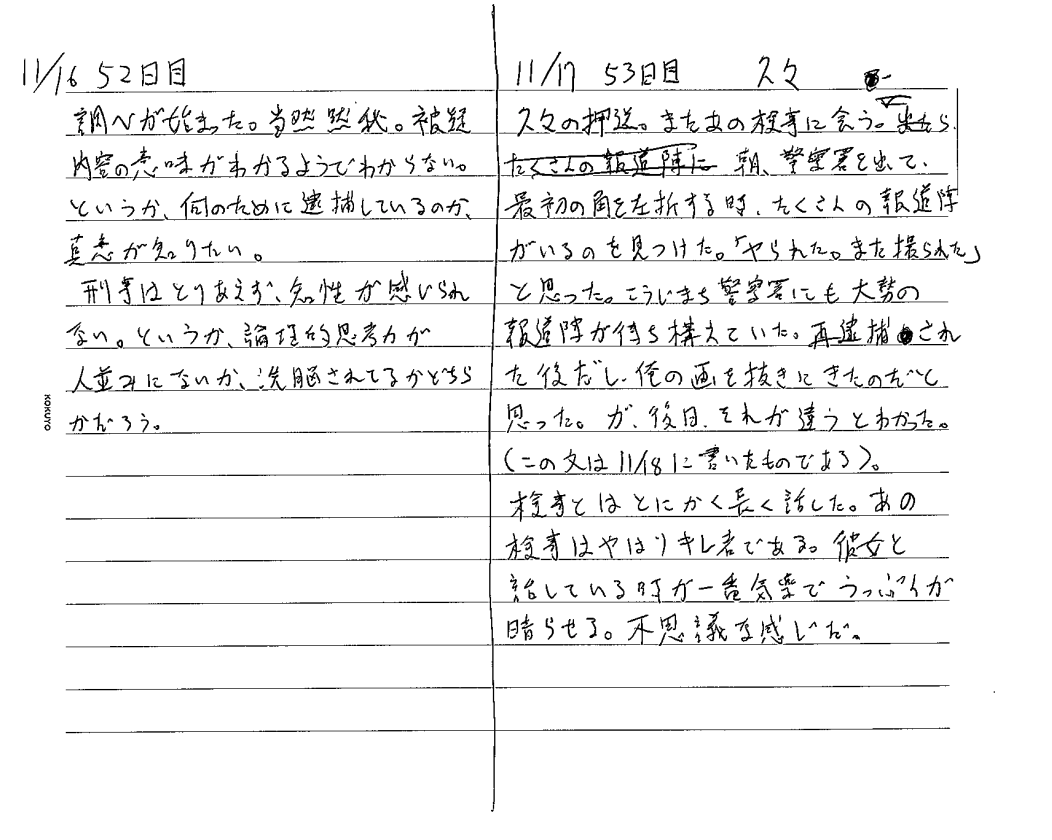 11/16 52日目
調べが始まった。当然然秘。被疑
内容の意味がわかるようでわからない。
というか、何のために逮捕しているのか、
真意が知りたい。
刑事はとりあえず、知性が感じられ
ない。というか、論理的思考力が
人並みにないか、洗脳されてるかどちら
かだろう。
KOKUYO
11/17 53日目 久々
久々の押送。またあの検事に会う。
たくさんの報道陣に 朝、警察署を出て、
最初の角を左折する時、たくさんの報道陣
がいるのを見つけた。「やられた。また撮られた」
と思った。こうじまち警察署にも大勢の
報道陣が待ち構えていた。再逮捕され
た後だし、俺の画を抜きにきたのだと
思った。が、後日、それが違うとわかった。
(この文は11/18に書いたものである)。
検事とはとにかく長く話した。あの
検事はやはりキレ者である。彼女と
話している時が一番気楽でうっぷんが
晴らせる。不思議な感じだ。